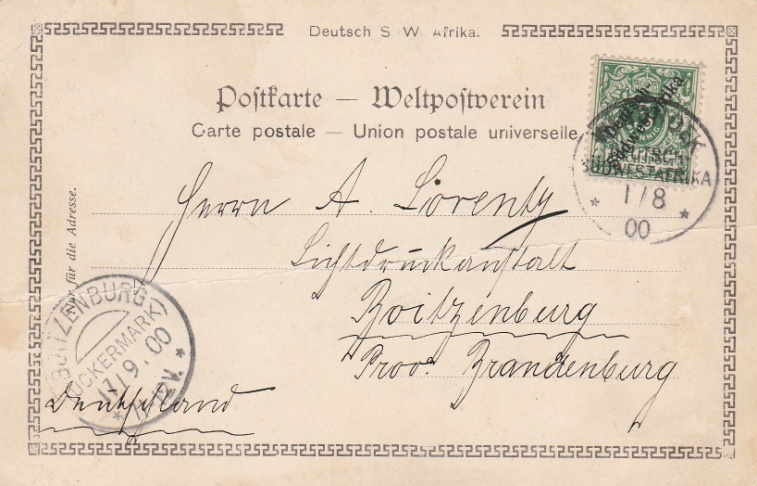 Deutsch S. W. Afrika.
Postkarte — Weltpostverein
Carte postale — Union postale universelle
Nur für die Adresse.
Deutsch-
Südwestafrika
DEUTSCH
SÜDWESTAFRIKA
* 1/8 *
00
Herrn A. Lorentz
Lichtdruckanstalt
Boitzenburg
Prov. Brandenburg
Deutschland
BOITZENBURG
(UCKERMARK)
17/9.00
* 11-12V. *